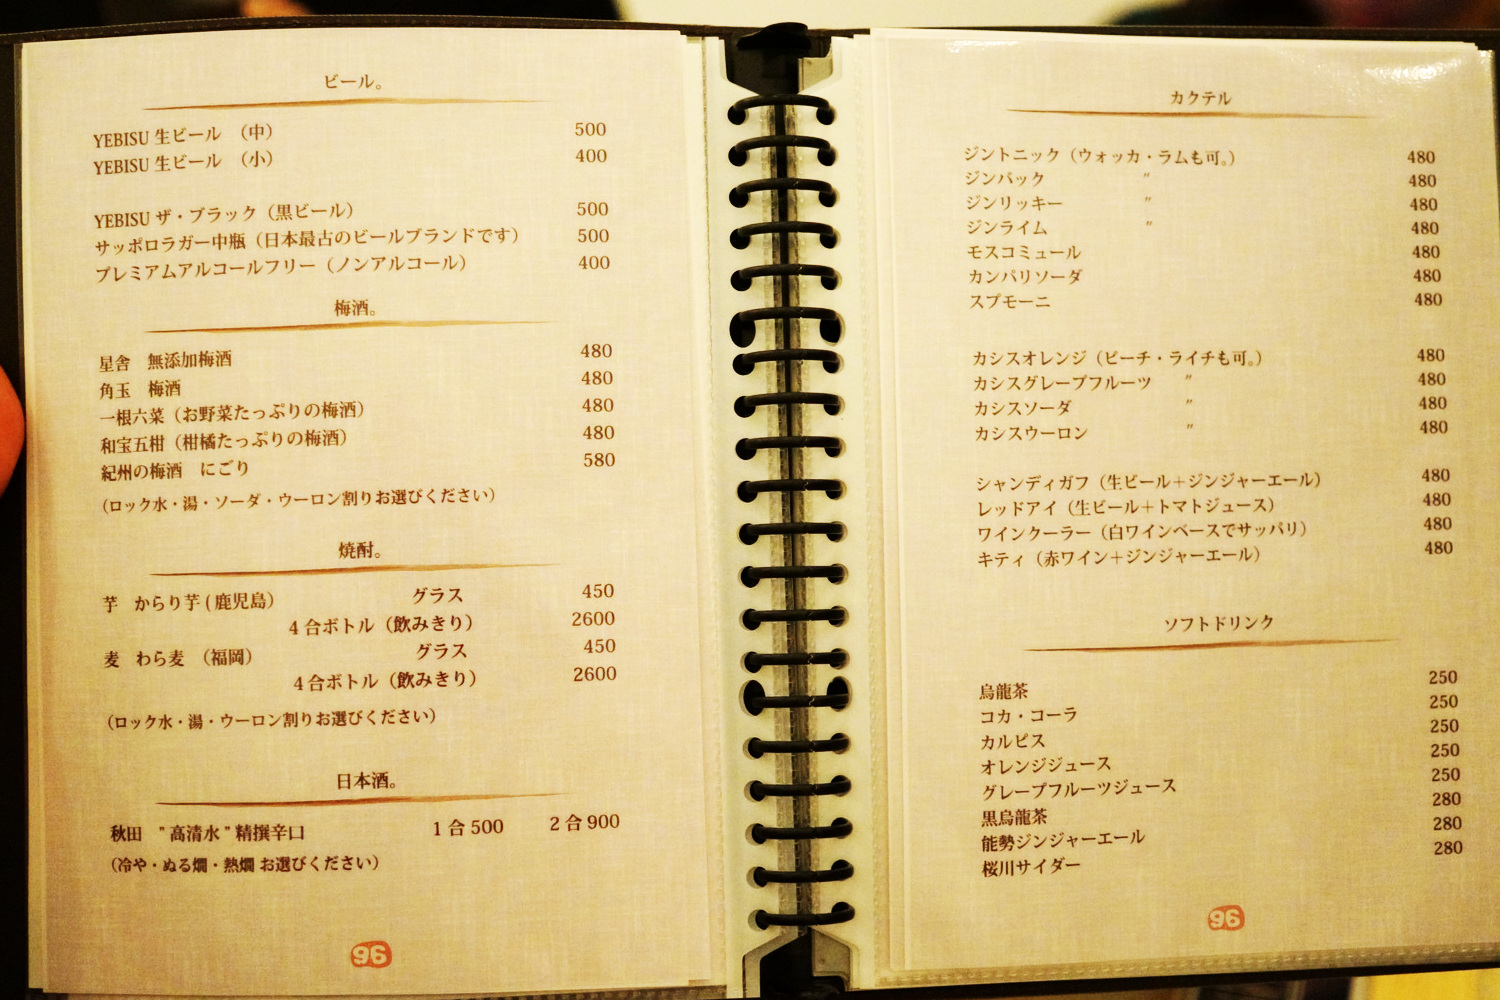 ビール。
YEBISU 生ビール （中） 500
YEBISU 生ビール （小） 400
YEBISU ザ・ブラック（黒ビール） 500
サッポロラガー中瓶（日本最古のビールブランドです） 500
プレミアムアルコールフリー（ノンアルコール） 400
梅酒。
星舎　無添加梅酒 480
角玉　梅酒 480
一根六菜（お野菜たっぷりの梅酒） 480
和宝五柑（柑橘たっぷりの梅酒） 480
紀州の梅酒　にごり 580
（ロック水・湯・ソーダ・ウーロン割りお選びください）
焼酎。
芋　からり芋 ( 鹿児島） グラス 450
4 合ボトル（飲みきり） 2600
麦　わら麦　（福岡） グラス 450
4 合ボトル（飲みきり） 2600
（ロック水・湯・ウーロン割りお選びください）
日本酒。
秋田　" 高清水 " 精撰辛口 1 合 500 2 合 900
（冷や・ぬる燗・熱燗 お選びください）
96
カクテル
ジントニック（ウォッカ・ラムも可。） 480
ジンバック 〃 480
ジンリッキー 〃 480
ジンライム 〃 480
モスコミュール 480
カンパリソーダ 480
スプモーニ 480
カシスオレンジ（ピーチ・ライチも可。） 480
カシスグレープフルーツ 〃 480
カシスソーダ 〃 480
カシスウーロン 〃 480
シャンディガフ（生ビール＋ジンジャーエール） 480
レッドアイ（生ビール＋トマトジュース） 480
ワインクーラー（白ワインベースでサッパリ） 480
キティ（赤ワイン＋ジンジャーエール） 480
ソフトドリンク
烏龍茶 250
コカ・コーラ 250
カルピス 250
オレンジジュース 250
グレープフルーツジュース 250
黒烏龍茶 280
能勢ジンジャーエール 280
桜川サイダー 280
96